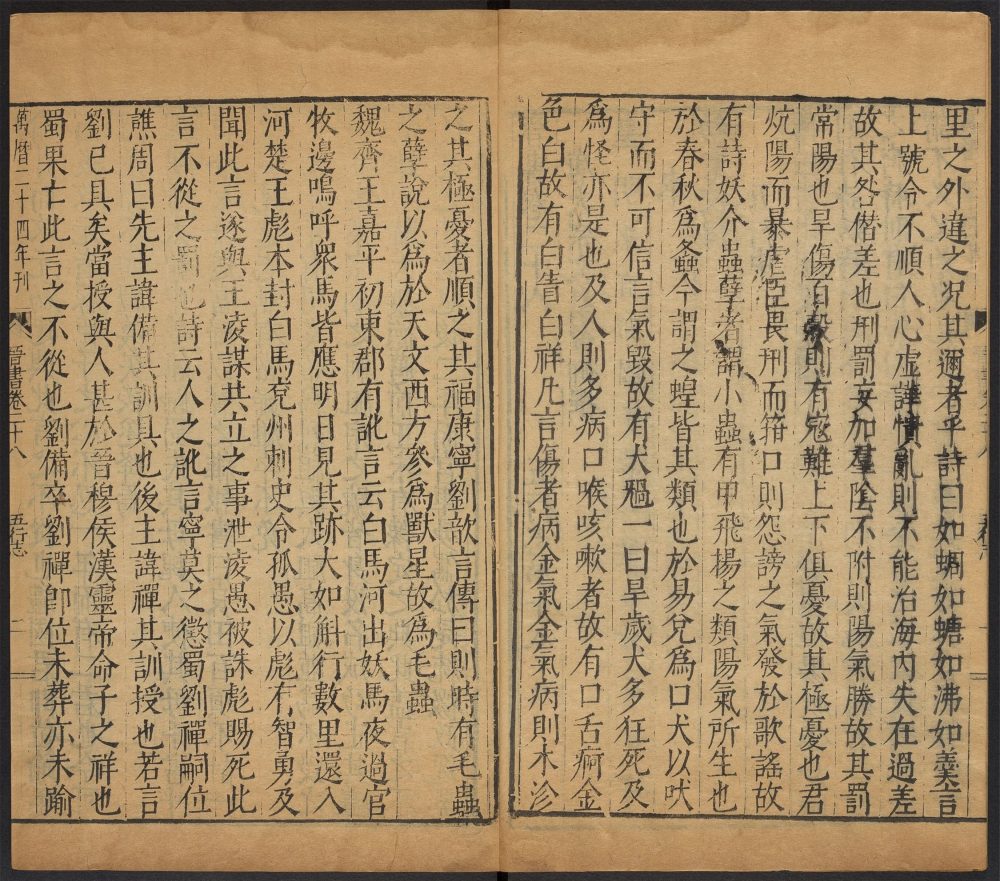 里之外違之況其邇者乎詩曰如蜩如螗如沸如羹言
上號令不順人心虛譁憒亂則不能治海內失在過差
故其咎僭差也刑罰妄加羣陰不附則陽氣勝故其罰
常陽也旱傷百穀則有寇難上下俱憂故其極憂也君
炕陽而暴虐臣畏刑而箝口則怨謗之氣發於歌謠故
有詩妖介蟲孽者謂小蟲有甲飛揚之類陽氣所生也
於春秋為螽今謂之蝗皆其類也於易兌為口犬以吠
守而不可信言氣毀故有犬禍一曰旱歲犬多狂死及
為怪亦是也及人則多病口喉咳嗽者故有口舌痾金
色白故有白眚白祥凡言傷者病金氣金氣病則木沴
之其極憂者順之其福康寧劉歆言傳曰則時有毛蟲
之孽說以為於天文西方參為獸星故為毛蟲
魏齊王嘉平初東郡有訛言云白馬河出妖馬夜過官
牧邊鳴呼眾馬皆應明日見其跡大如斛行數里還入
河楚王彪本封白馬兗州刺史令孤愚以彪有智勇及
聞此言遂與王凌謀共立之事泄凌愚被誅彪賜死此
言不從之罰也詩云人之訛言寧莫之懲蜀劉禪嗣位
譙周曰先主諱備其訓具也後主諱禪其訓授也若言
劉已具矣當授與人甚於晉穆侯漢靈帝命子之祥也
蜀果亡此言之不從也劉備卒劉禪卽位未葬亦未踰
萬曆二十四年刊
晉書卷二十八 五行志 二